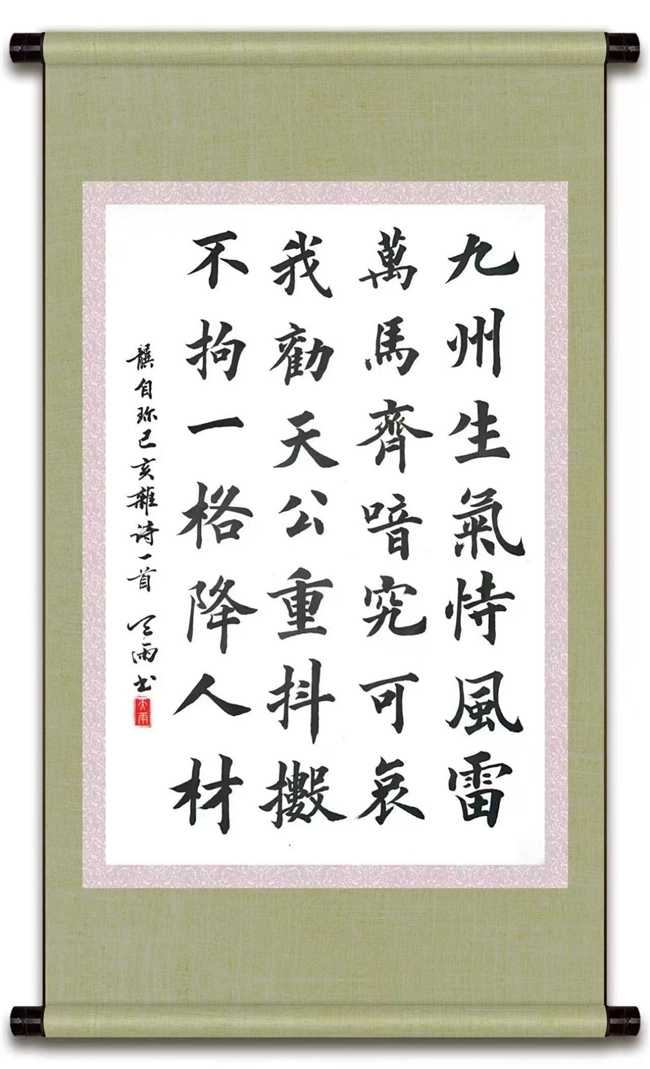 九州生氣恃風雷
萬馬齊喑究可哀
我勸天公重抖擻
不拘一格降人材
龔自珍己亥雜诗一首 天雨书
天雨